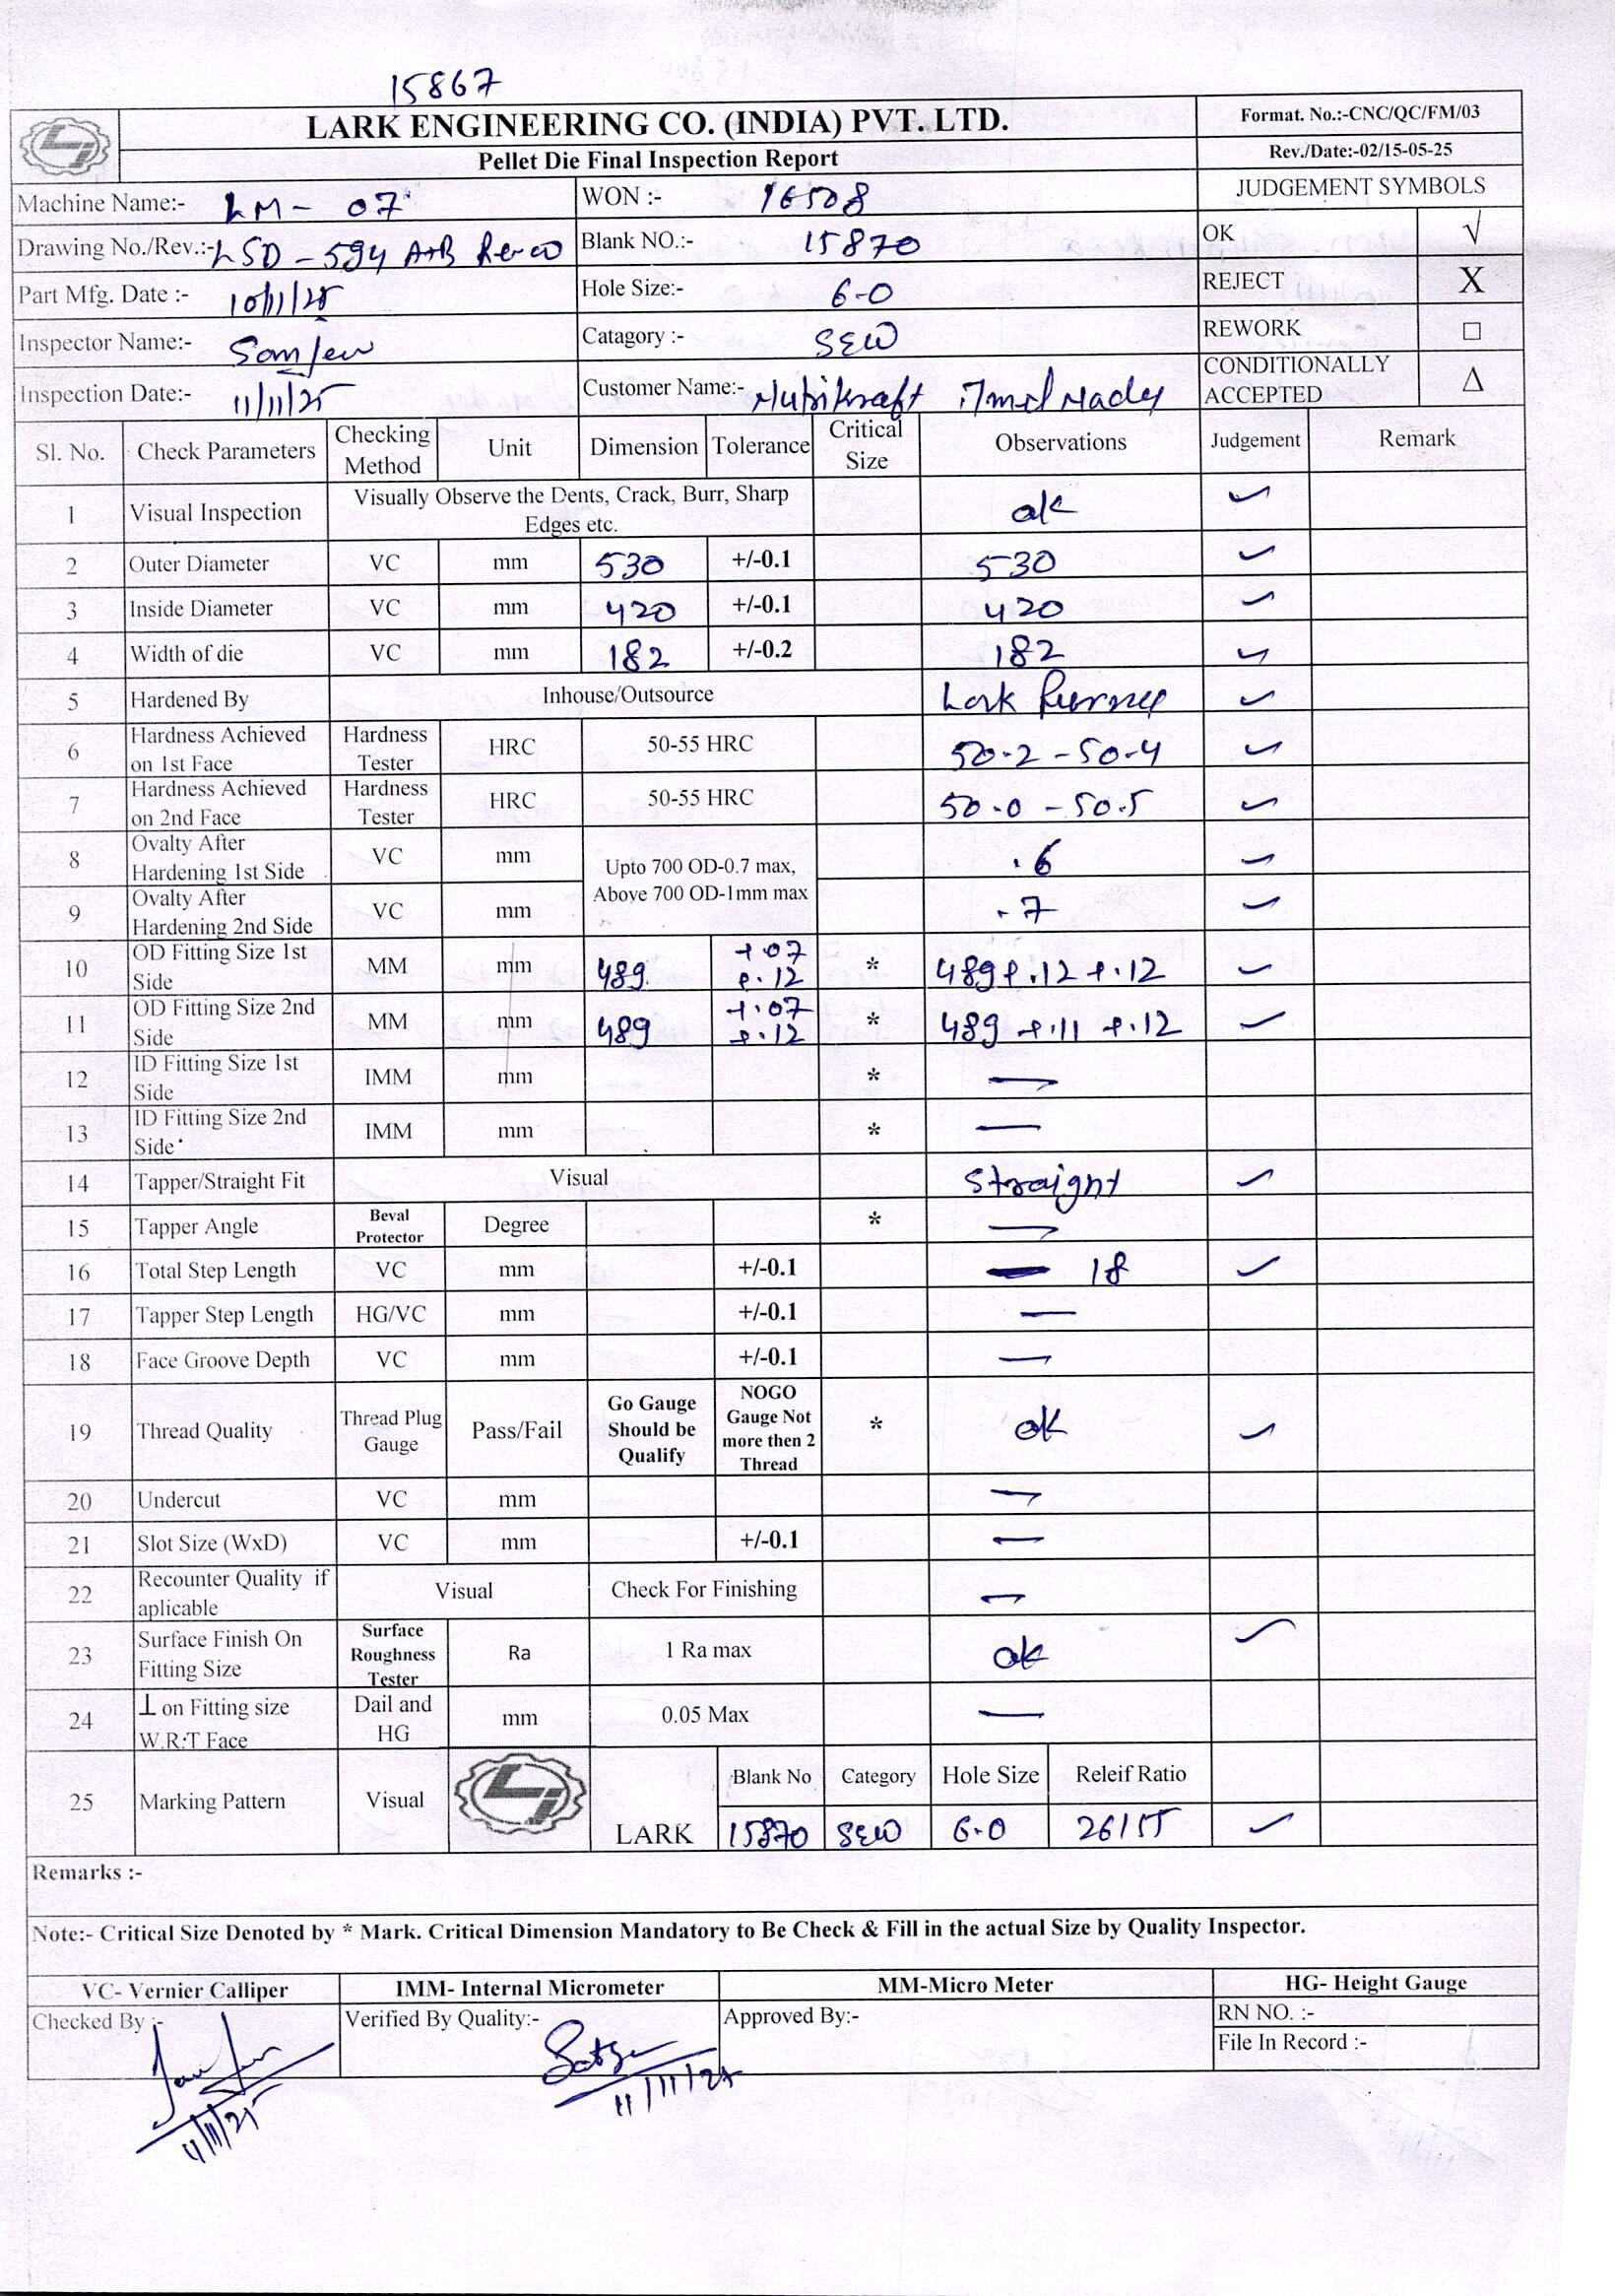 15867
LARK ENGINEERING CO. (INDIA) PVT. LTD.
Format. No.:-CNC/QC/FM/03
Pellet Die Final Inspection Report
Rev./Date:-02/15-05-25
Machine Name:- LM- 07
WON :- 16508
JUDGEMENT SYMBOLS
Drawing No./Rev.:- LSD - 594 A+B Rev-00
Blank NO.:- 15870
OK √
Part Mfg. Date :- 10/11/25
Hole Size:- 6-0
REJECT X
Inspector Name:- Sanjeev
Catagory :- SEW
REWORK □
Inspection Date:- 11/11/25
Customer Name:- Nutrikraft
CONDITIONALLY ACCEPTED Δ
Sl. No. Check Parameters Checking Method Unit Dimension Tolerance Critical Size Observations Judgement Remark
1 Visual Inspection Visually Observe the Dents, Crack, Burr, Sharp Edges etc. ok ✓
2 Outer Diameter VC mm 530 +/-0.1 530 ✓
3 Inside Diameter VC mm 420 +/-0.1 420 ✓
4 Width of die VC mm 182 +/-0.2 182 ✓
5 Hardened By Inhouse/Outsource Lark ✓
6 Hardness Achieved on 1st Face Hardness Tester HRC 50-55 HRC 50.2 - 50.4 ✓
7 Hardness Achieved on 2nd Face Hardness Tester HRC 50-55 HRC 50.0 - 50.5 ✓
8 Ovalty After Hardening 1st Side VC mm Upto 700 OD-0.7 max, Above 700 OD-1mm max .6 ✓
9 Ovalty After Hardening 2nd Side VC mm .7 ✓
10 OD Fitting Size 1st Side MM mm 489 +.07 +.12 * 489 +.12 +.12 ✓
11 OD Fitting Size 2nd Side MM mm 489 +.07 +.12 * 489 +.11 +.12 ✓
12 ID Fitting Size 1st Side IMM mm * —
13 ID Fitting Size 2nd Side IMM mm * —
14 Tapper/Straight Fit Visual Straight ✓
15 Tapper Angle Beval Protector Degree * —
16 Total Step Length VC mm +/-0.1 18 ✓
17 Tapper Step Length HG/VC mm +/-0.1 —
18 Face Groove Depth VC mm +/-0.1 —
19 Thread Quality Thread Plug Gauge Pass/Fail Go Gauge Should be Qualify NOGO Gauge Not more then 2 Thread * ok ✓
20 Undercut VC mm —
21 Slot Size (WxD) VC mm +/-0.1 —
22 Recounter Quality if aplicable Visual Check For Finishing —
23 Surface Finish On Fitting Size Surface Roughness Tester Ra 1 Ra max ok ✓
24 ⊥ on Fitting size W.R:T Face Dail and HG mm 0.05 Max —
25 Marking Pattern Visual LARK Blank No Category Hole Size Releif Ratio
15870 SEW 6-0 26/55 ✓
Remarks :-
Note:- Critical Size Denoted by * Mark. Critical Dimension Mandatory to Be Check & Fill in the actual Size by Quality Inspector.
VC- Vernier Calliper IMM- Internal Micrometer MM-Micro Meter HG- Height Gauge
Checked By :- Verified By Quality:- Approved By:- RN NO. :-
File In Record :-
11/11/25
11/11/25